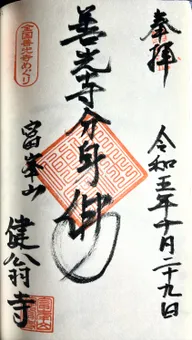 奉拝
令和五年十月二十九日
善光寺分身佛
全国善光寺めぐり
富峯山
健翁寺